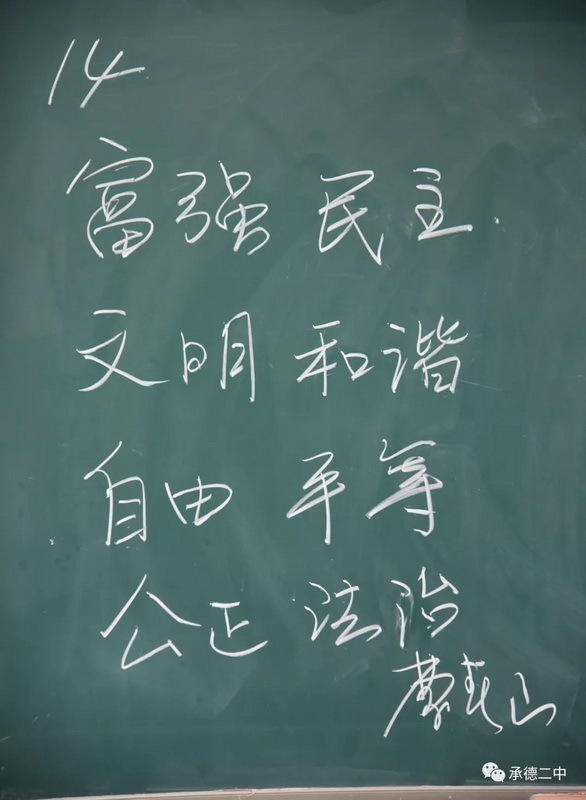 14
富强 民主
文明 和谐
自由 平等
公正 法治
承德二中